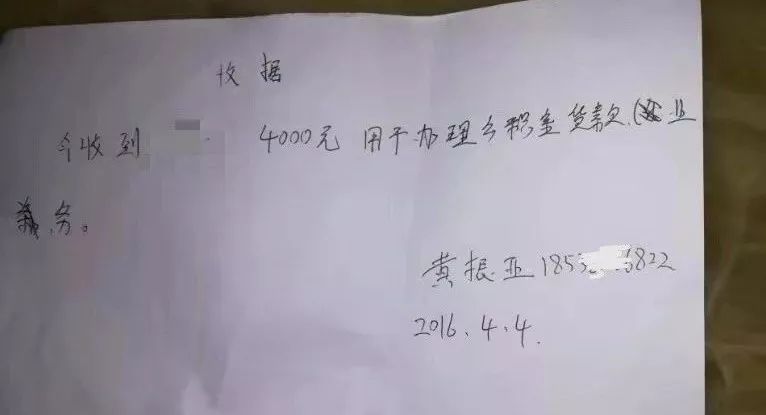 收据
今收到 4000元 用于办理公积金货款业
务。
黄振亚185 6822
2016.4.4.